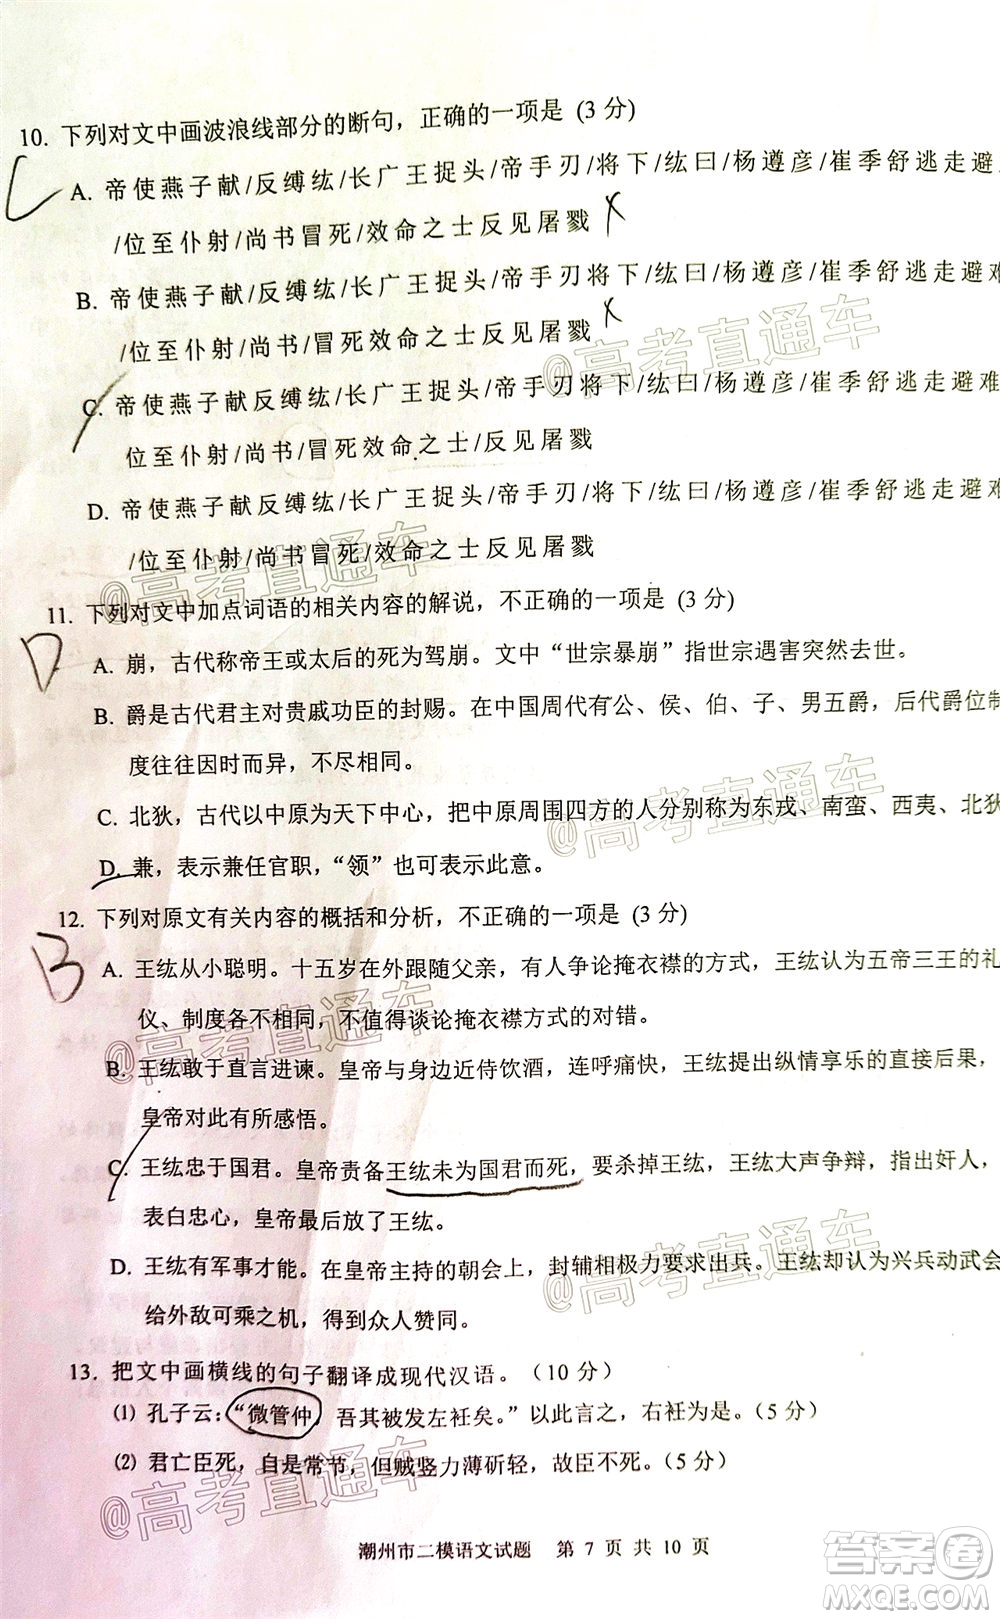 10. 下列对文中画波浪线部分的断句，正确的一项是 (3 分)
A. 帝使燕子献/反缚纮/长广王捉头/帝手刃/将下/纮曰/杨遵彦/崔季舒逃走避
/位至仆射/尚书冒死/效命之士反见屠戮
B. 帝使燕子献/反缚纮/长广王捉头/帝手刃将下/纮曰/杨遵彦/崔季舒逃走避难
/位至仆射/尚书/冒死效命之士反见屠戮
C. 帝使燕子献反缚纮/长广王捉头/帝手刃将下/纮曰/杨遵彦/崔季舒逃走避难
位至仆射/尚书/冒死效命之士/反见屠戮
D. 帝使燕子献反缚纮/长广王捉头/帝手刃/将下/纮曰/杨遵彦/崔季舒逃走避难
/位至仆射/尚书冒死/效命之士反见屠戮
11. 下列对文中加点词语的相关内容的解说，不正确的一项是 (3 分)
A. 崩，古代称帝王或太后的死为驾崩。文中“世宗暴崩”指世宗遇害突然去世。
B. 爵是古代君主对贵戚功臣的封赐。在中国周代有公、侯、伯、子、男五爵，后代爵位制
度往往因时而异，不尽相同。
C. 北狄，古代以中原为天下中心，把中原周围四方的人分别称为东戎、南蛮、西夷、北狄
D. 兼，表示兼任官职，“领”也可表示此意。
12. 下列对原文有关内容的概括和分析，不正确的一项是 (3 分)
A. 王纮从小聪明。十五岁在外跟随父亲，有人争论掩衣襟的方式，王纮认为五帝三王的礼
仪、制度各不相同，不值得谈论掩衣襟方式的对错。
B. 王纮敢于直言进谏。皇帝与身边近侍饮酒，连呼痛快，王纮提出纵情享乐的直接后果，
皇帝对此有所感悟。
C. 王纮忠于国君。皇帝责备王纮未为国君而死，要杀掉王纮，王纮大声争辩，指出奸人，
表白忠心，皇帝最后放了王纮。
D. 王纮有军事才能。在皇帝主持的朝会上，封辅相极力要求出兵。王纮却认为兴兵动武会
给外敌可乘之机，得到众人赞同。
13. 把文中画横线的句子翻译成现代汉语。（10 分）
⑴ 孔子云：“微管仲，吾其被发左衽矣。”以此言之，右衽为是。（5 分）
⑵ 君亡臣死，自是常节，但贼竖力薄斫轻，故臣不死。（5 分）
潮州市二模语文试题 第 7 页 共 10 页
C
D
B
@高考直通车
@高考直通车
@高考直通车
@高考直通车
@高考直通车
@高考直通车
答案圈
MXQE.COM